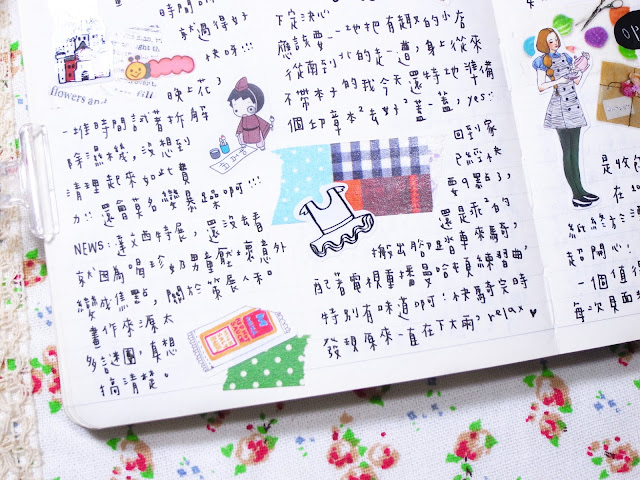 就過得好
快呀!!!
晚上花了
一堆時間試著拆解
除濕機,沒想到
清理起來如此費
力!!還會莫名變暴躁呵!!!
NEWS:達文西特展,還沒去看
就因為喝珍奶男童壓壞意外
變成焦點,關於策展人和
畫作來源太
多謎團,真想
搞清楚。
flowers and
下定決心
應該要一一地把有趣的小店
從南到北的走一遭,身上從來
不帶本子的我今天還特地準備
個印章本去好好蓋一蓋,yes!!
回到家
已經快
要9點了,
還是乖乖的
搬出腳踏車來騎,
配著電視重播曼哈頓練習曲,
特別有味道呵!快騎完時
發現原來一直在下大雨,relax♥
是收
在
超開心,
一個值得
每次見面